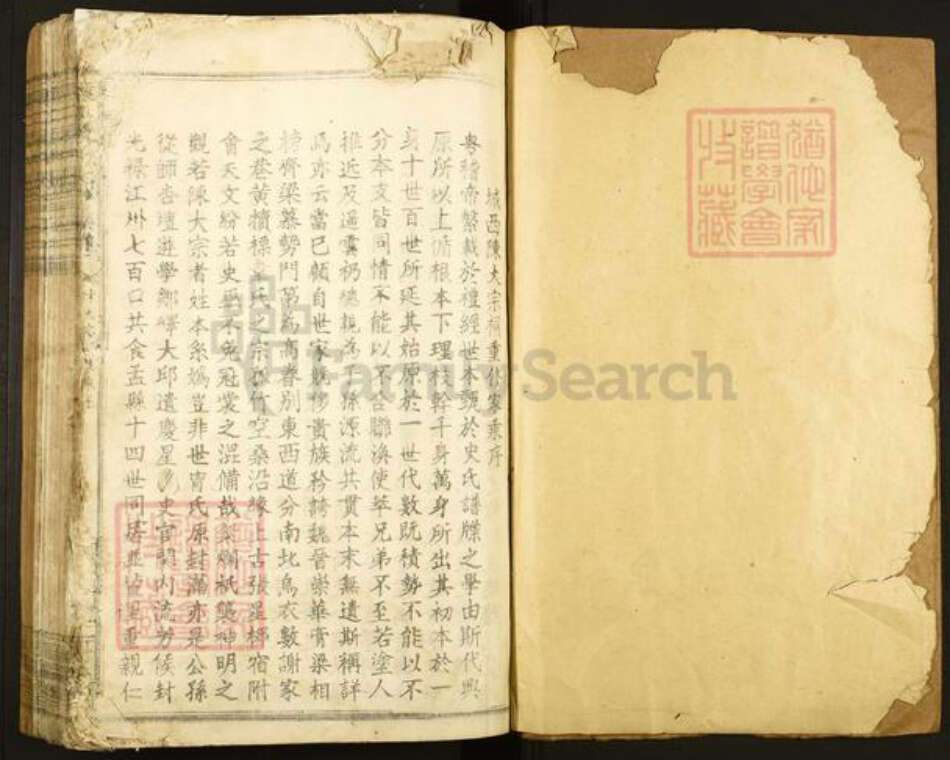 城西陳大宗祠重修家乘序
粵稽帝繫載於禮經世本甄於史氏譜牒之學由斯代興
原所以上循根本下理枝幹千身萬身所出其初本於一
身十世百世所延其始原於一世代數既積勢不能以不
分本支皆同情不能以不合聯渙使萃兄弟不至若塗人
推近及遠雲礽總視為子孫源流共貫本末無遺斯稱詳
焉亦云當已顧自世家既移貴族矜誇魏晉崇華膏梁相
榜齊梁慕勢門第為高春別東西道分南北烏衣數謝家
之巷黃犢標 氏之宗 竹空桑沿緣上古張星柳宿附
會天文紛若史 不免冠裳之混備哉 爛祇 神明之
觀若陳大宗者姓本系媯豈非世胄氏原封滿亦是公孫
從師杏壇遊學鄒嶧大邱遺慶星 史官關內流芳侯封
光祿江州七百口共食孟縣十四世同居並 里重親仁
猶他家譜學會收藏
FamilySearch